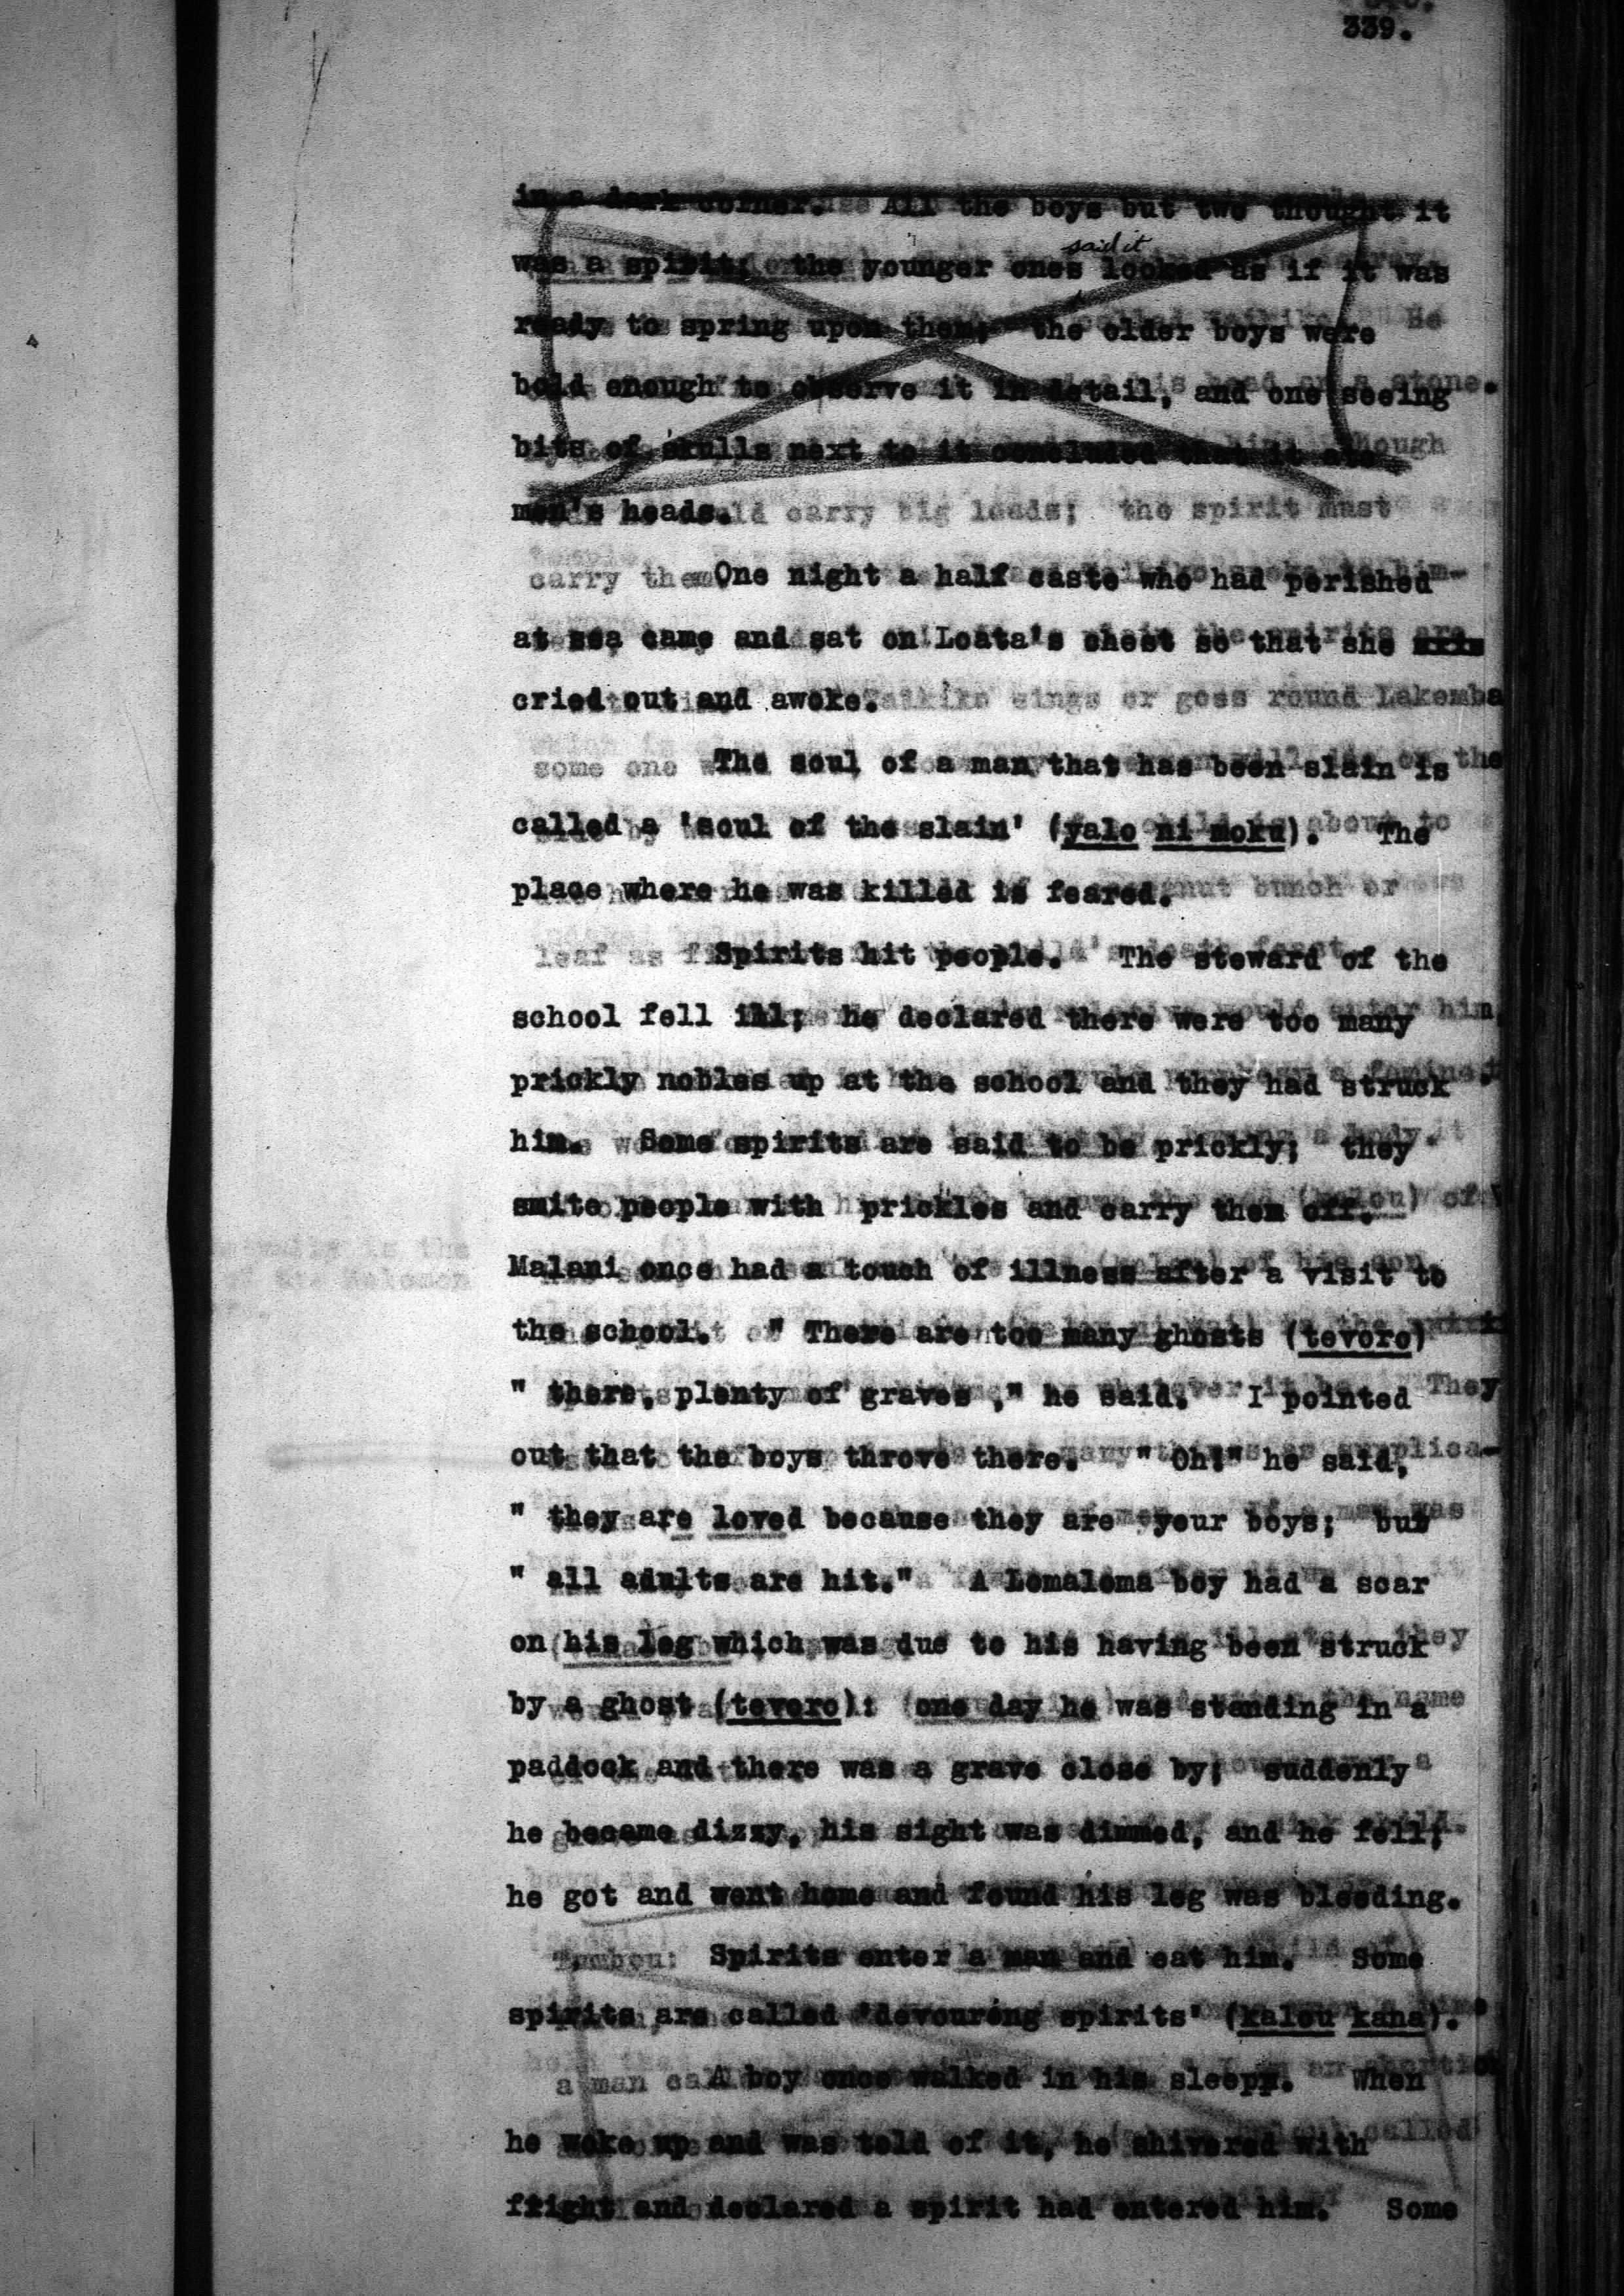 339.
in a dark corner. All the boys but two thought it
said it
was a spirit; the younger ones looked as if it was
ready to spring upon them; the older boys were
bold enough to observe it in detail, and one seeing
bits of skulls next to it concluded that it ate
men's heads.
One night a half caste who had perished
at sea came and sat on Loata's chest so that she
cried out and awoke.
The soul of a man that has been slain is
called a 'soul of the slain' (yalo ni moku). The
place where he was killed is feared.
Spirits hit people. The steward of the
school fell ill; he declared there were too many
prickly nobles up at the school and they had struck
him. Some spirits are said to be prickly; they
smite people with prickles and carry them off.
Malani once had a touch of illness after a visit to
the school. " There are too many ghosts (tevoro)
" there, plenty of graves ," he said. I pointed
out that the boys throve there. " Oh!" he said,
" they are loved because they are your boys; but
" all adults are hit." A Lomaloma boy had a scar
on his leg which was due to his having been struck
by a ghost (tevoro): one day he was standing in a
paddock and there was a grave close by; suddenly
he became dizzy, his sight was dimmed, and he fell;
he got and went home and found his leg was bleeding.
Spirits enter a man and eat him. Some
spirits are called 'devouréng spirits' (kalou kana).
A boy once walked in his sleepp. When
he woke up and was told of it, he shivered with
fright and declared a spirit had entered him. Some